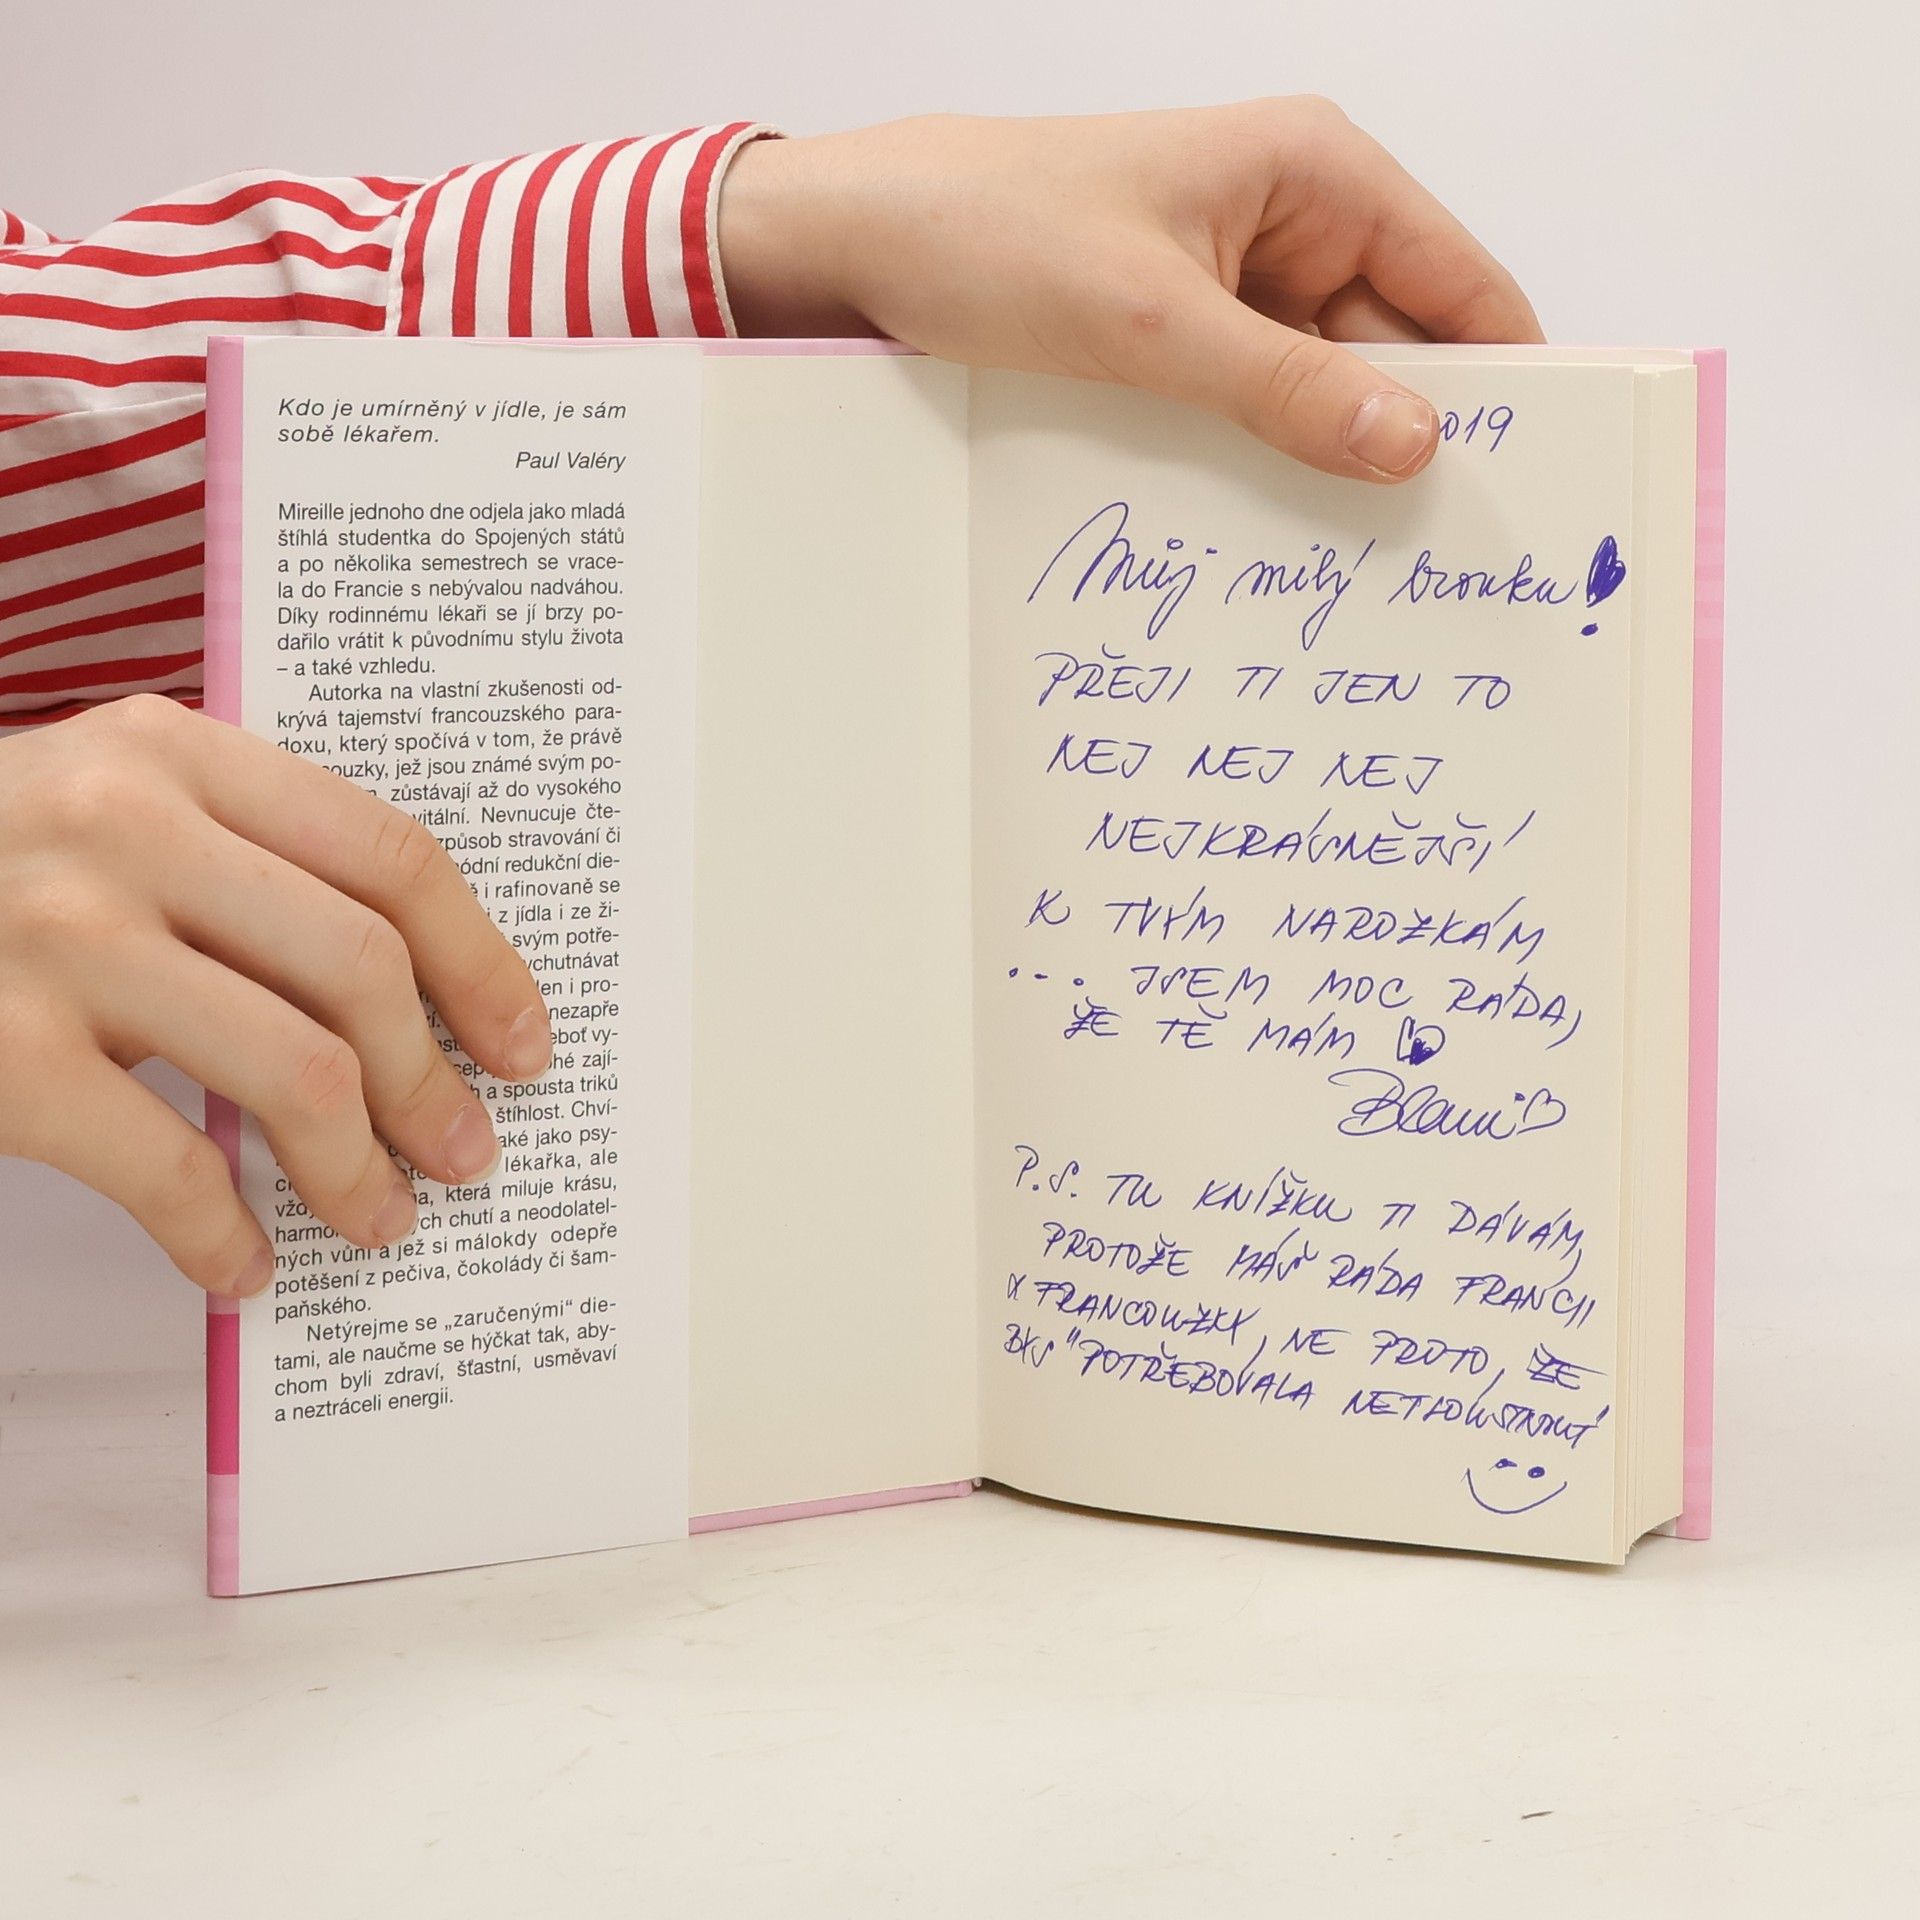 Kdo je umírněný v jídle, je sám
sobě lékařem.
Paul Valéry
Mireille jednoho dne odjela jako mladá
štíhlá studentka do Spojených států
a po několika semestrech se vrace-
la do Francie s nebývalou nadváhou.
Díky rodinnému lékaři se jí brzy po-
dařilo vrátit k původnímu stylu života
– a také vzhledu.
Autorka na vlastní zkušenosti od-
krývá tajemství francouzského para-
doxu, který spočívá v tom, že právě
ouzky, jež jsou známé svým po-
zůstávají až do vysokého
vitální. Nevnucuje čte-
způsob stravování či
ódní redukční die-
i rafinovaně se
z jídla i ze ži-
svým potře-
ychutnávat
len i pro-
nezapře
eboť vy-
hé zají-
a spousta triků
štíhlost. Chví-
aké jako psy-
lékařka, ale
vžd která miluje krásu,
harmo ých chutí a neodolatel-
ných vůní a jež si málokdy odepře
potěšení z pečiva, čokolády či šam-
paňského.
Netýrejme se „zaručenými“ die-
tami, ale naučme se hýčkat tak, aby-
chom byli zdraví, šťastní, usměvaví
a neztráceli energii.
019
Můj milý brouku!
PŘEJI TI JEN TO
NEJ NEJ NEJ
NEJKRÁSNĚJŠÍ
K TVÝM NAROZKÁM
... JSEM MOC RÁDA,
ŽE TĚ MÁM
P.S. TU KNÍŽKU TI DÁVÁM,
PROTOŽE MÁŠ RÁDA FRANCII
A FRANCOUZKY, NE PROTO, ŽE
BYS POTŘEBOVALA NETLOUSTNOUT